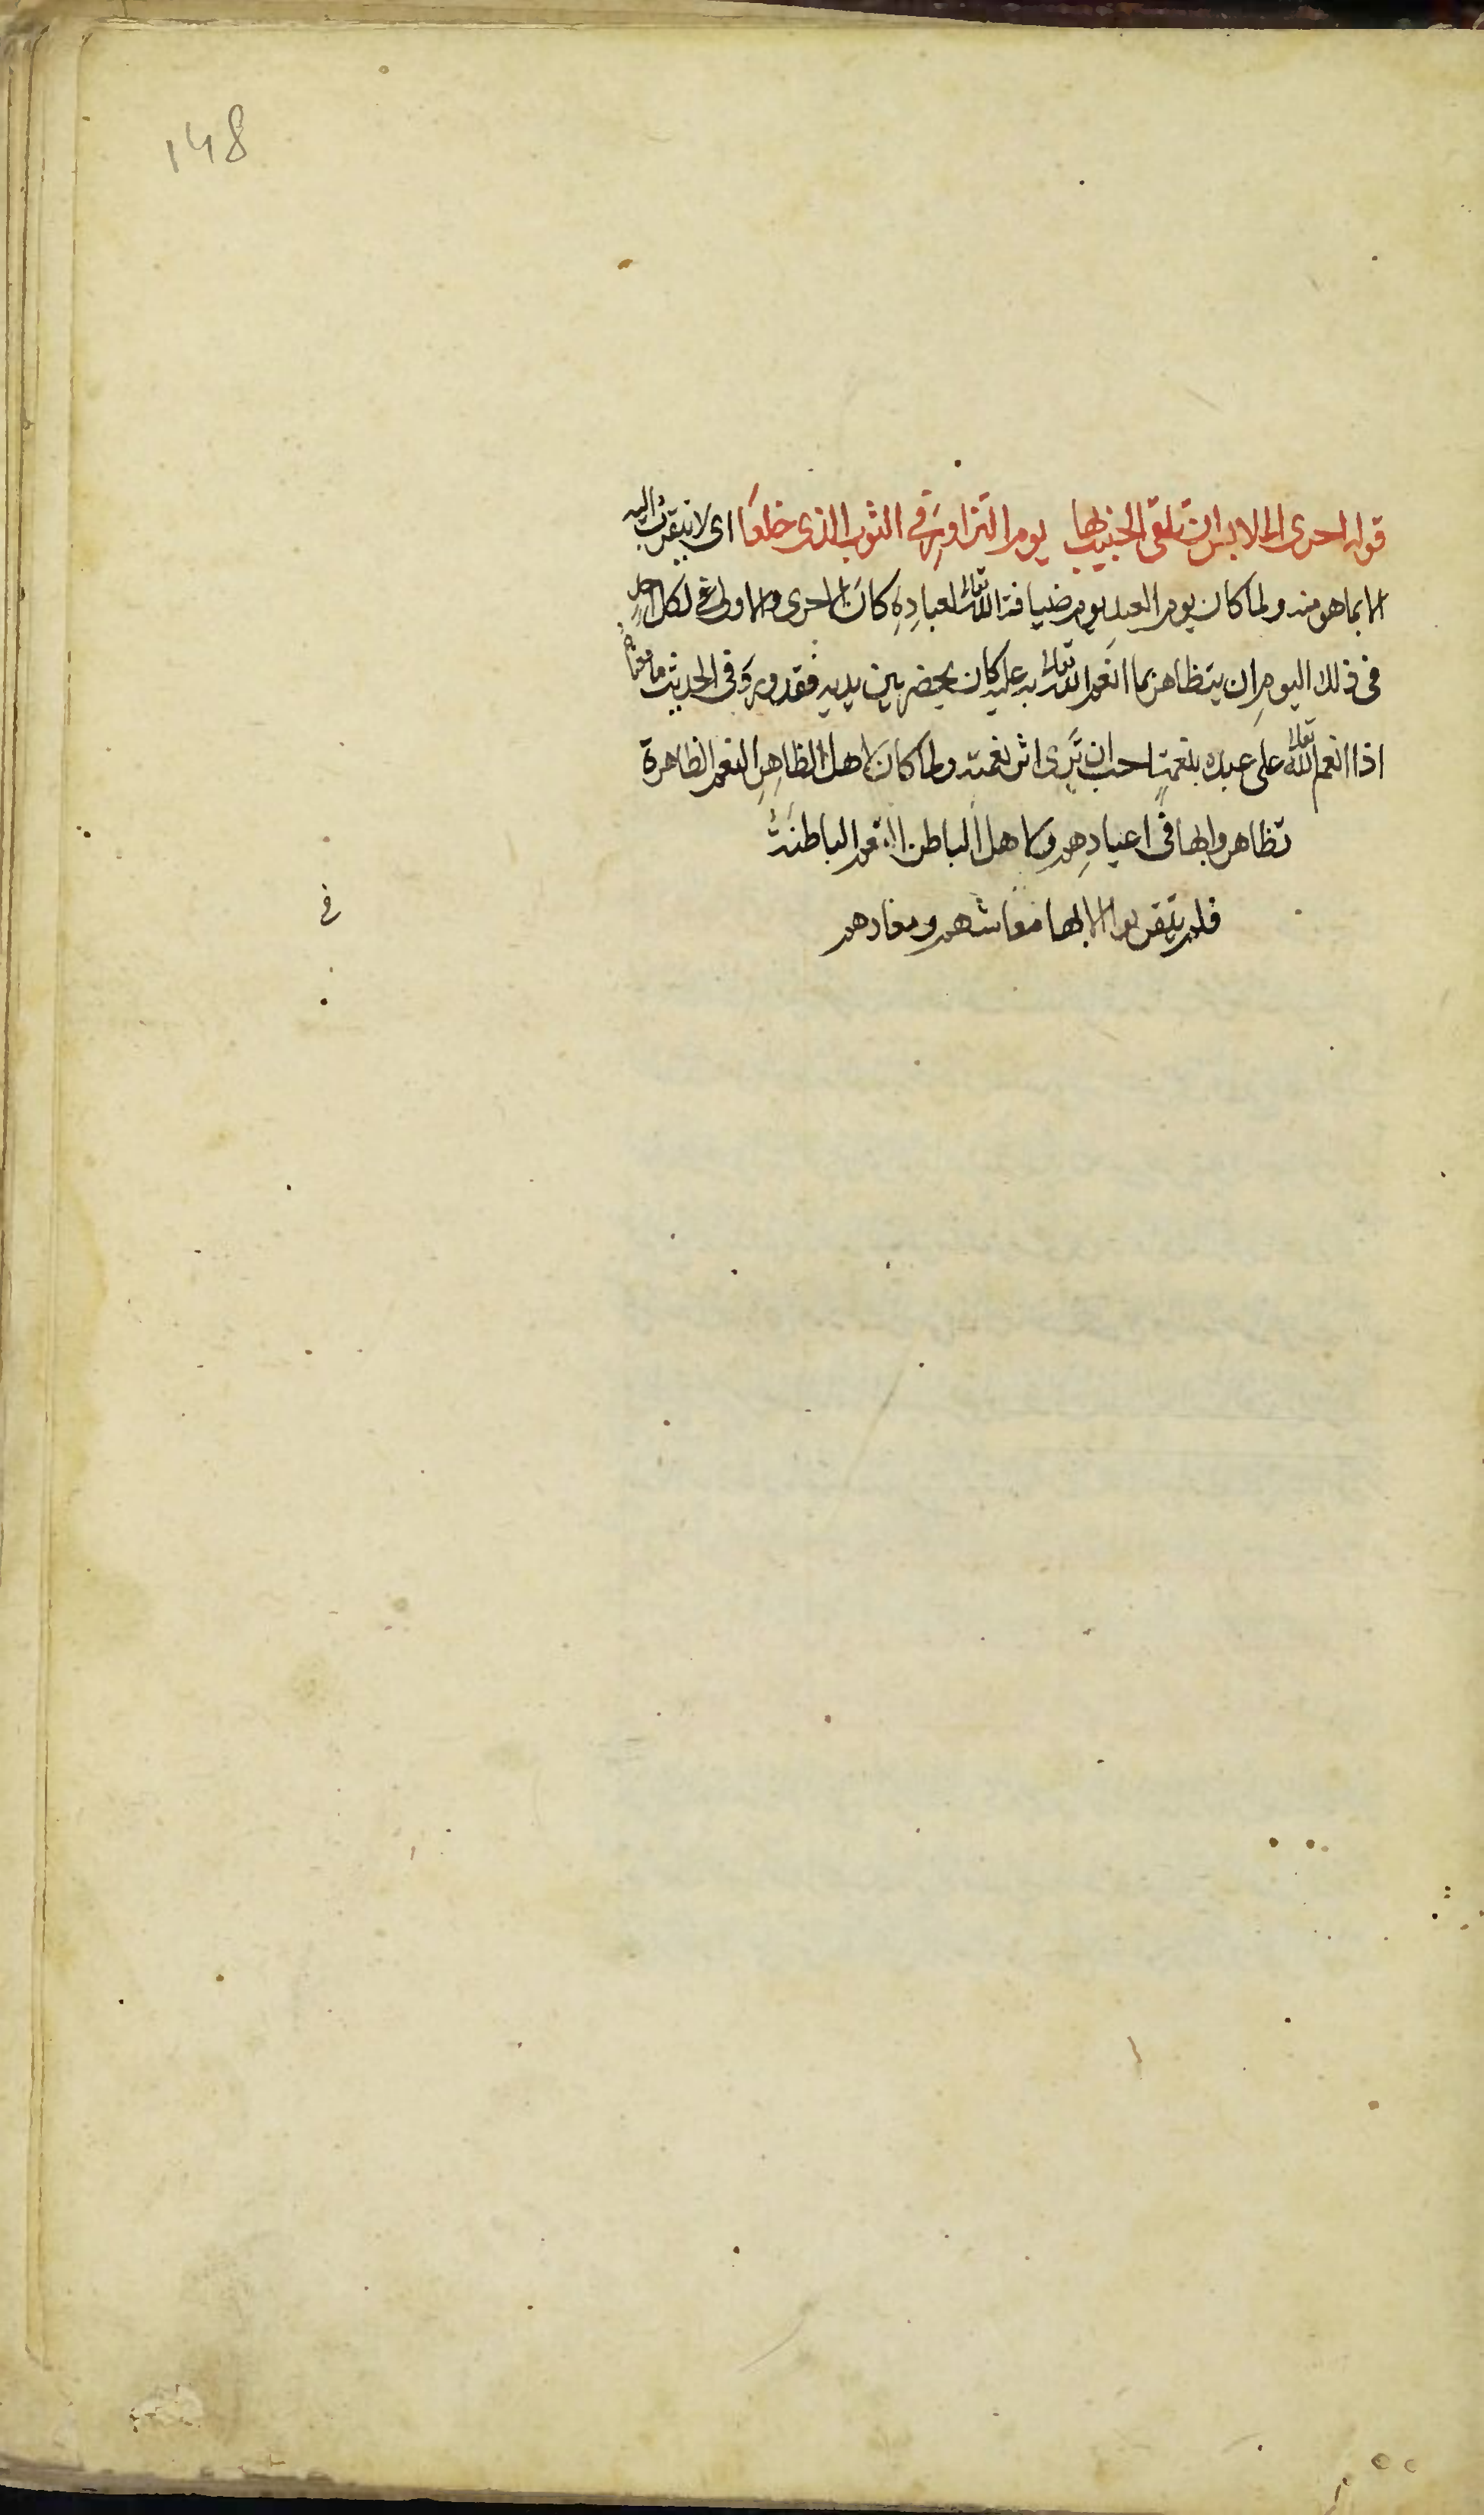 148
قوله احرى الملابس ان تلقى الحبيب بها يوم التزاور في الثوب الذي خلعا اى لا يتقرب اليه
الا بما هو منه ولما كان يوم العيد يوم ضيافة الله تعالى لعباده كان الاحرى والاولى لكل احد
فى ذلك اليوم ان يتظاهر بما انعم الله تعالى به عليه كان يحضر بين يديه فقد ورد فى الحديث ما معناه
اذا انعم الله تعالى على عبده بنعمة احب ان ترى اثر نعمته ولما كان لاهل الظاهر النعم الظاهرة
تظاهروا بها فى اعيادهم ولاهل الباطن النعم الباطنة
فلم يتقربوا الا بها معاشهم ومعادهم
في